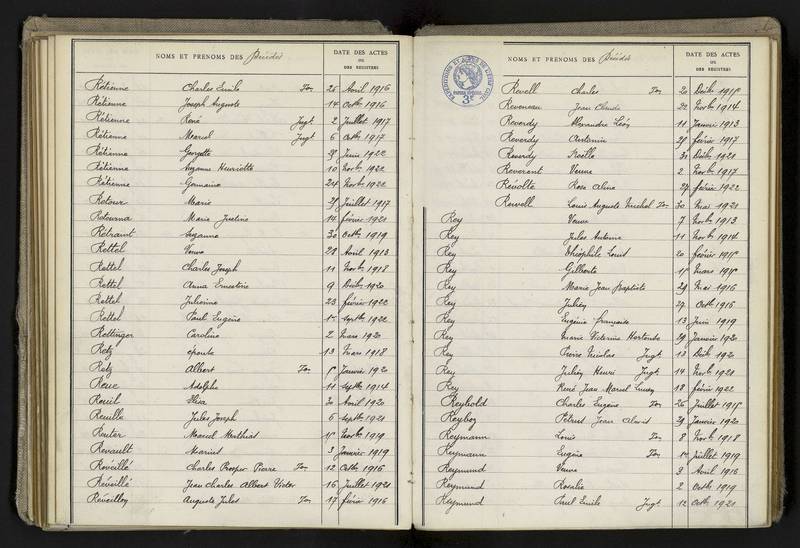 NOMS ET PRENOMS DES Décédés
DATE DES ACTES
OU
DES REGISTRES
Rétienne Charles Emile Fon 26 Avril 1916
Rétienne Joseph Auguste 14 Octb 1916
Rétienne René Jugt 2 Juillet 1917
Rétienne Marcel Jugt 6 Octb 1917
Rétienne Georgette Juin 1922
Rétienne Suzanne Henriette 10 Novb 1922
Rétienne Germaine 24 Novb 1922
Retour Marie Juillet 1917
Retourna Marie Justine 14 février 1921
Rétrant Suzanne 30 Octb 1919
Rettel Veuve 28 Avril 1913
Rettel Charles Joseph 11 Novb 1918
Rettel Anna Ernestine 9 Décb 1920
Rettel Julienne 23 février 1922
Rettel Paul Eugène Septb 1922
Rettinger Caroline 2 Mars 1920
Retz épouse 13 Mars 1918
Retz Albert Fon Janvier 1920
Reue Adolphe 11 Septb 1914
Reuil Elisa 30 Avril 1920
Reuille Jules Joseph 6 Septb 1921
Reuter Marcel Mathias Novb 1919
Revault Marius 3 Janvier 1919
Réveillé Charles Prosper Pierre Fon 12 Octb 1916
Réveillé Jean Charles Albert Victor 16 Juillet 1921
Réveilloy Auguste Jules Fon 17 févr 1916
NOMS ET PRENOMS DES Décédés
DATE DES ACTES
OU
DES REGISTRES
EXPÉDITIONS ET ACTES DE L'ÉTAT CIVIL
PAPIER SPÉCIAL
3e
Revell Charles Fon 20 Décb
Reveneau Jean Claude 22 Novb 1914
Reverdy Alexandre Léon 11 Janvier 1913
Reverdy Antonin février 1917
Reverdy Noëlle 31 Décb 1921
Reverent Veuve 2 Novb 1917
Révolte Rose Aline février 1922
Rewell Louis Auguste Michel Fon 30 Mai 1921
Rey Veuve 7 Novb 1913
Rey Jules Antoine 11 Novb 1914
Rey Théophile Louis 20 février
Rey Gilberte Mars
Rey Marie Jean Baptiste 29 Mai 1916
Rey Julien 27 Octb 1916
Rey Eugénie françoise 13 Juin 1919
Rey Marie Victorine Hortense 29 Janvier 1920
Rey Pierre Nicolas Jugt 13 Décb 1920
Rey Julien Henri Jugt 14 Novb 1921
Rey René Jean Marcel 18 févr 1922
Reybold Charles Eugène Fon 26 Juillet
Reyboz Pétrus Jean 29 Janvier 1920
Reymann Louis Fon 8 Novb 1918
Reymann Eugène Fon Juillet 1919
Reymund Veuve 9 Avril 1916
Reymund Rosalie 2 Octb 1919
Reymund Paul Emile Jugt 12 Octb 1921